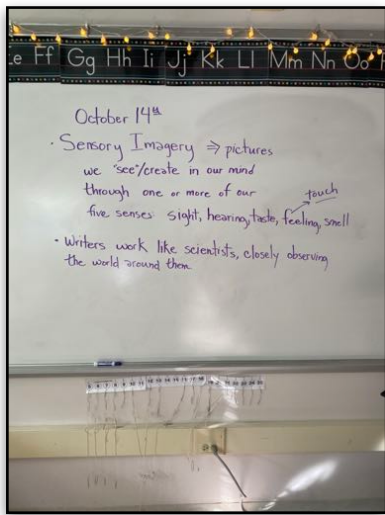 Ee Ff Gg Hh Ii Jj Kk Ll Mm Nn Oo
October 14th
· Sensory Imagery ⇒ pictures
we "see"/create in our mind
through one or more of our
touch
five senses sight, hearing, taste, feeling, smell
· Writers work like scientists, closely observing
the world around them.